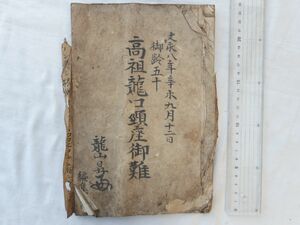 文永八年辛未九月十二日
御齢五十
高祖龍口頸座御難
龍山